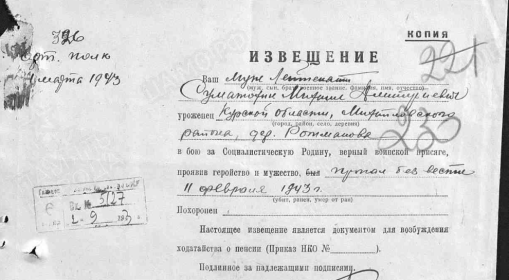 КОПИЯ
326
арт. полк
марта 1943
ИЗВЕЩЕНИЕ
221
Ваш муж лейтенант
(муж, сын, брат, военное звание, фамилия, имя, отчество)
уроженец Курской области, Михайловского
(город, район, село, деревня)
района, дер.
233
в бою за Социалистическую Родину, верный воинской присяге,
проявив геройство и мужество, был пропал без вести
11 февраля 1943 г.
(убит, ранен, умер от ран)
Похоронен
Настоящее извещение является документом для возбуждения
ходатайства о пенсии (Приказ НКО №          ).
Подлинное за надлежащими подписями